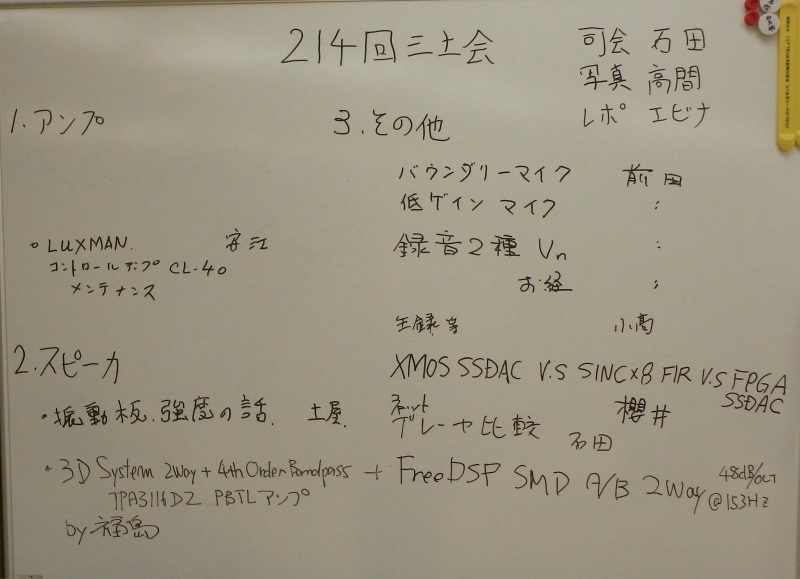 214回三土会
司会 石田
写真 高間
レポ エビナ
1.アンプ
○LUXMAN. 安江
コントロールアンプ CL-40
メンテナンス
2.スピーカ
・振動板.強度の話. 土屋.
・3D System 2way + 4th Order Bandpass + FreeDSP SMD A/B 2way 48dB/oct @153Hz
TPA3116D2 PBTLアンプ
by 福島
3.その他
バウンダリーマイク 前田
低ゲイン マイク 〃
録音2種 Vn 〃
お経 〃
生録等 小高
XMOS SSDAC V.S SINC×B FIR V.S FPGA
SSDAC
櫻井
ネット
プレーヤ比較 石田